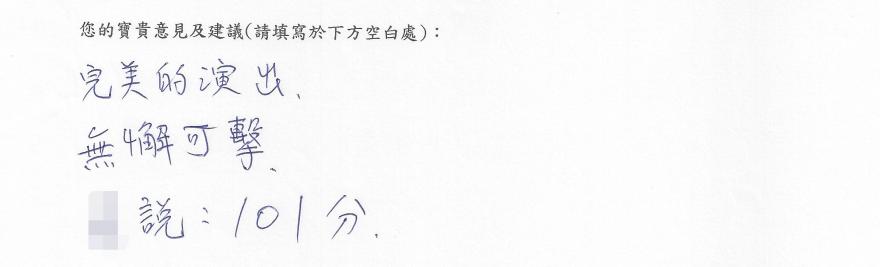 您的寶貴意見及建議(請填寫於下方空白處)：
完美的演出、
無懈可擊、
說：101分、